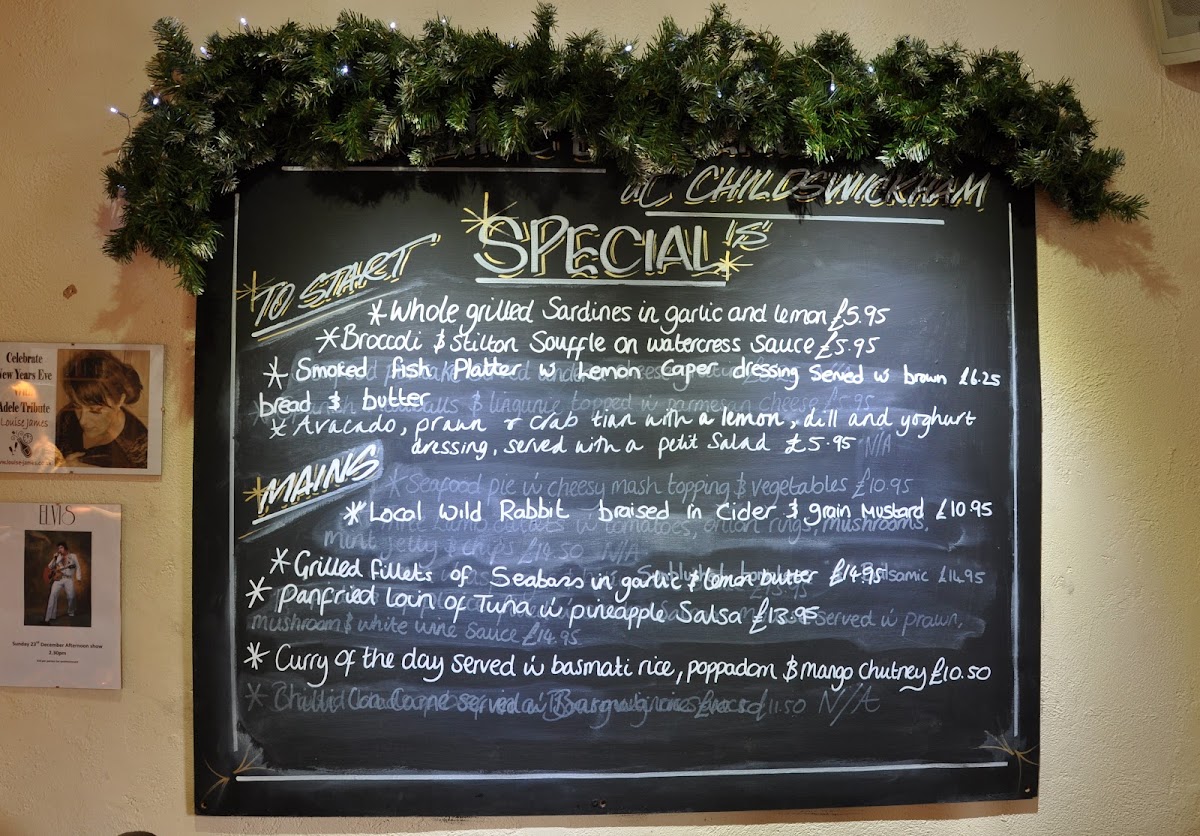 at CHILDSWICKHAM
SPECIAL'S
TO START
* Whole grilled Sardines in garlic and lemon £5.95
* Broccoli & Stilton Souffle on watercress sauce £5.95
* Smoked Fish Platter w Lemon Caper dressing Served w brown £6.25
bread & butter
* Avacado, prawn & crab tian with a lemon, dill and yoghurt
dressing, served with a petit salad £5.95 N/A
MAINS
* Seafood pie w cheesy mash topping & vegetables £10.95
* Local Wild Rabbit braised in Cider & grain Mustard £10.95
mint jelly & chips £14.50 N/A
* Grilled fillets of Seabass in garlic & lemon butter £14.95
* Panfried Loin of Tuna w pineapple Salsa £13.95
mushroom & white wine sauce £14.95
* Curry of the day served w basmati rice, poppadom & mango chutney £10.50
N/A
Celebrate
New Years Eve
With
Adele Tribute
Louise James
ELVIS
Sunday 23rd December Afternoon show
2.30pm